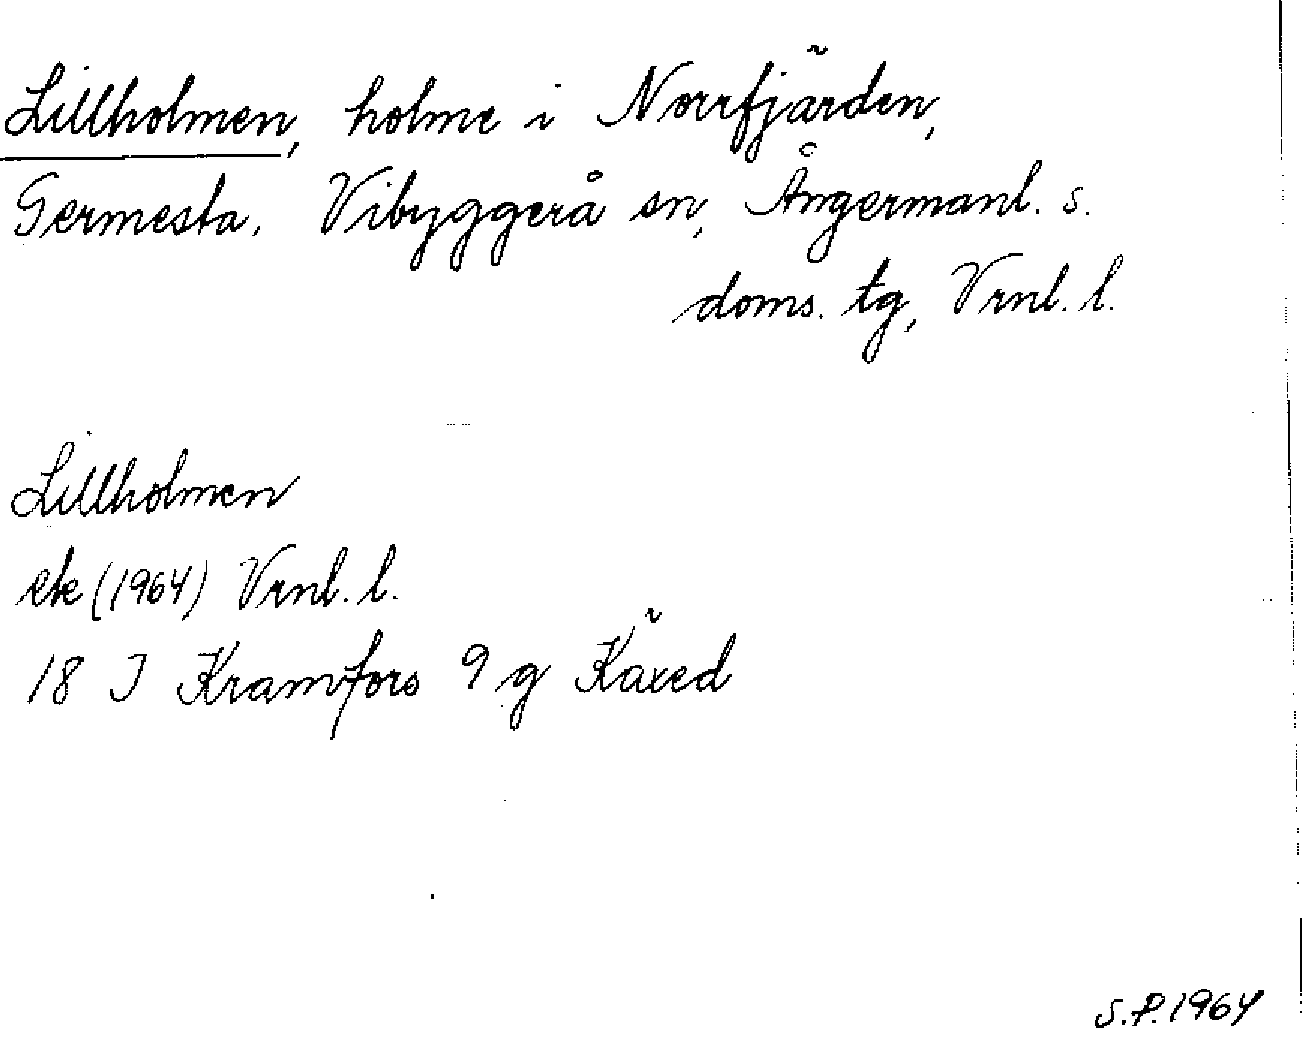 Lillholmen, holme i Norrfjärden,
Germesta, Vibyggerå sn, Ångermanl. s.
doms. tg, Vrnl. l.
Lillholmen
ek (1964) Vrnl. l.
18 J Kramfors 9 g Käxed
S.P. 1964